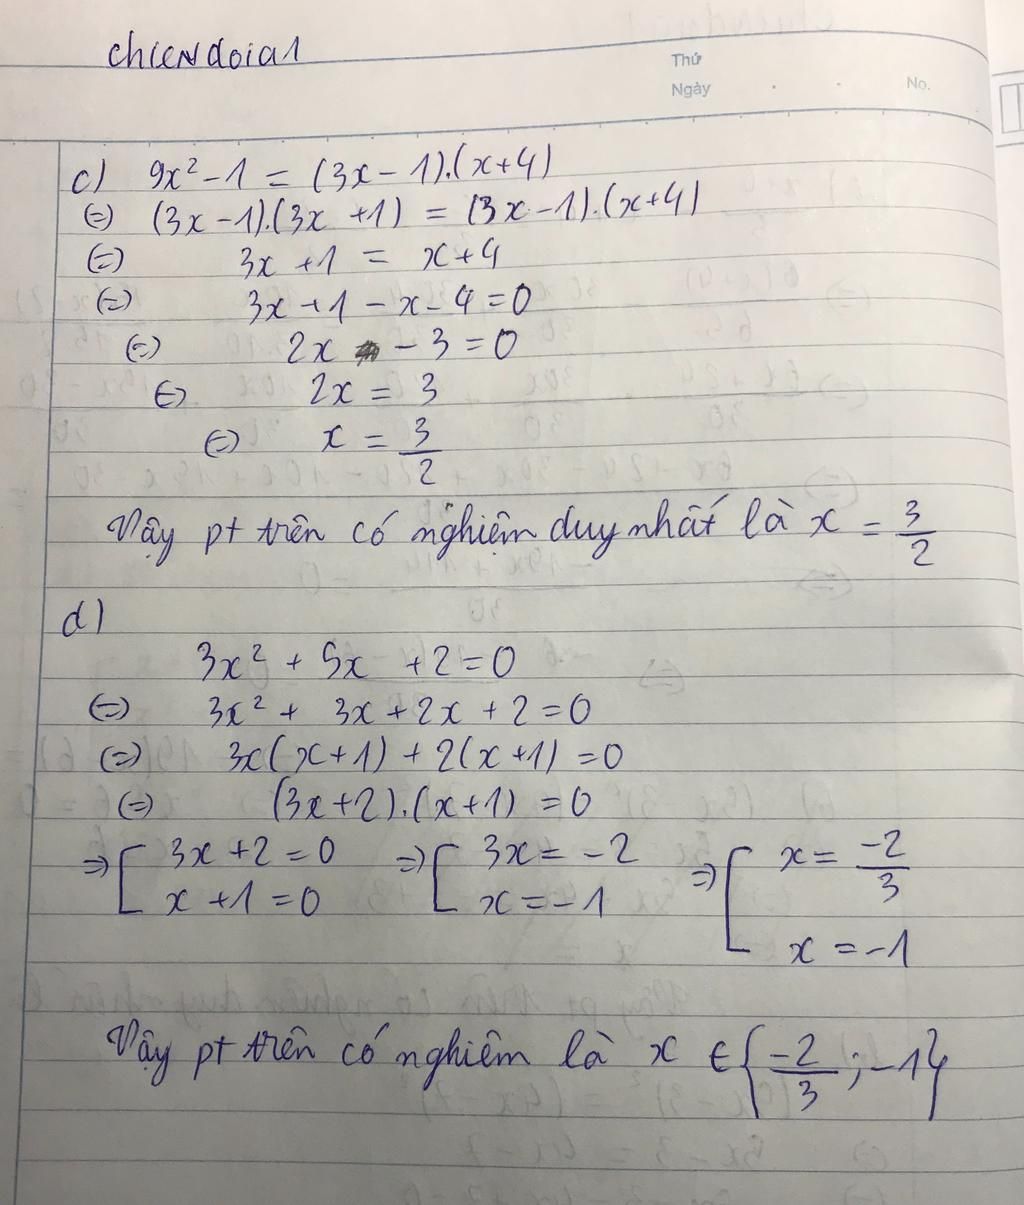 chiendoia1
Thứ
Ngày
No.
c) 9x² - 1 = (3x - 1).(x+4)
(=) (3x -1).(3x +1) = (3x -1).(x+4)
(=) 3x +1 = x+4
(=) 3x +1 - x - 4 = 0
(=) 2x - 3 = 0
(=) 2x = 3
(=) x = 3/2
Vậy pt trên có nghiệm duy nhất là x = 3/2
d)
3x² + 5x + 2 = 0
(=) 3x² + 3x + 2x + 2 = 0
(=) 3x(x+1) + 2(x+1) = 0
(=) (3x+2).(x+1) = 0
=> [ 3x + 2 = 0 => [ 3x = -2 => [ x = -2/3
x + 1 = 0 x = -1 x = -1
Vậy pt trên có nghiêm là x ∈ {-2/3 ; -1}